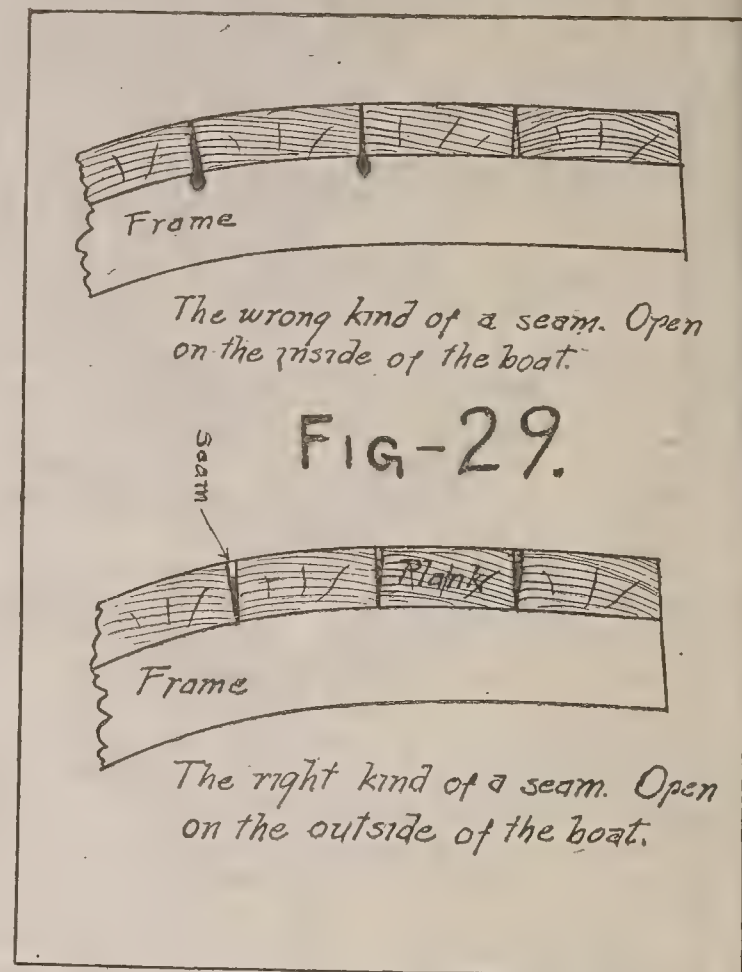 Frame
The wrong kind of a seam. Open
on the inside of the boat.
FIG-29.
Seam
Plank
Frame
The right kind of a seam. Open
on the outside of the boat.